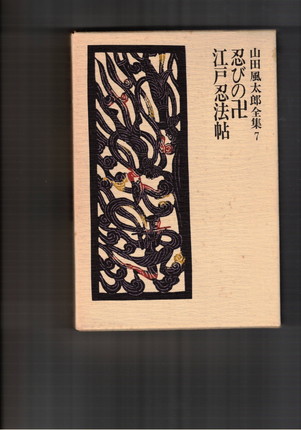 山田風太郎全集7
忍びの卍
江戸忍法帖